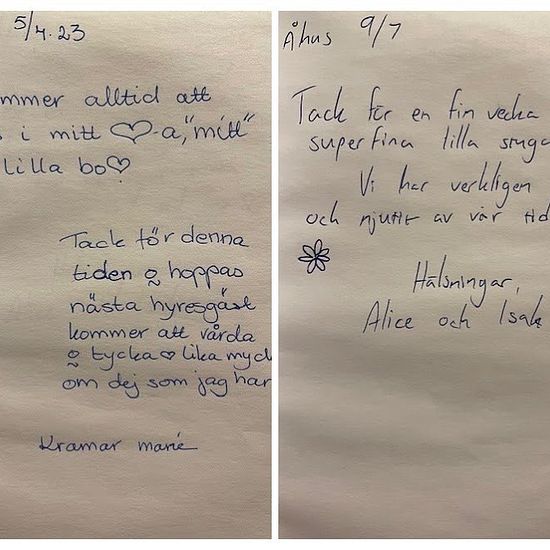 5/4.23
mmer alltid att
s i mitt ♡-a, "mitt"
lilla bo♡
Tack för denna
tiden o hoppas
nästa hyresgäst
kommer att vårda
o tycka ♡ lika myck
om dej som jag har
Kramar marie
Åhus 9/7
Tack för en fin vecka
superfina lilla stuga
Vi har verkligen
och njutit av vår tid
Hälsningar,
Alice och Isak